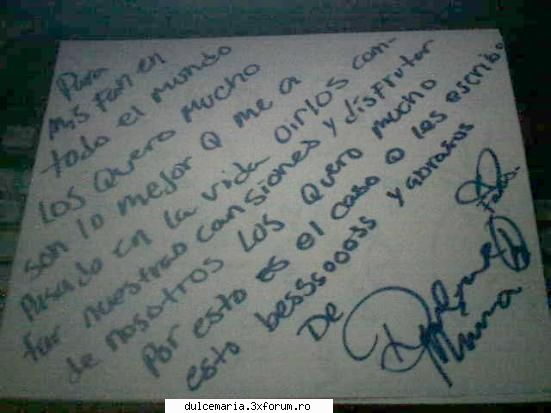 Para
mis fan en
todo el mundo
los quero mucho
son lo mejor q me a
pasado en la vida oirlos can-
tar nuestras cansiones y disfrutar
de nosotros los quero mucho
Por esto es el caso q les escribo
esto bessssooooss y abrasos
De Dulce
Maria
dulcemaria.3xforum.ro